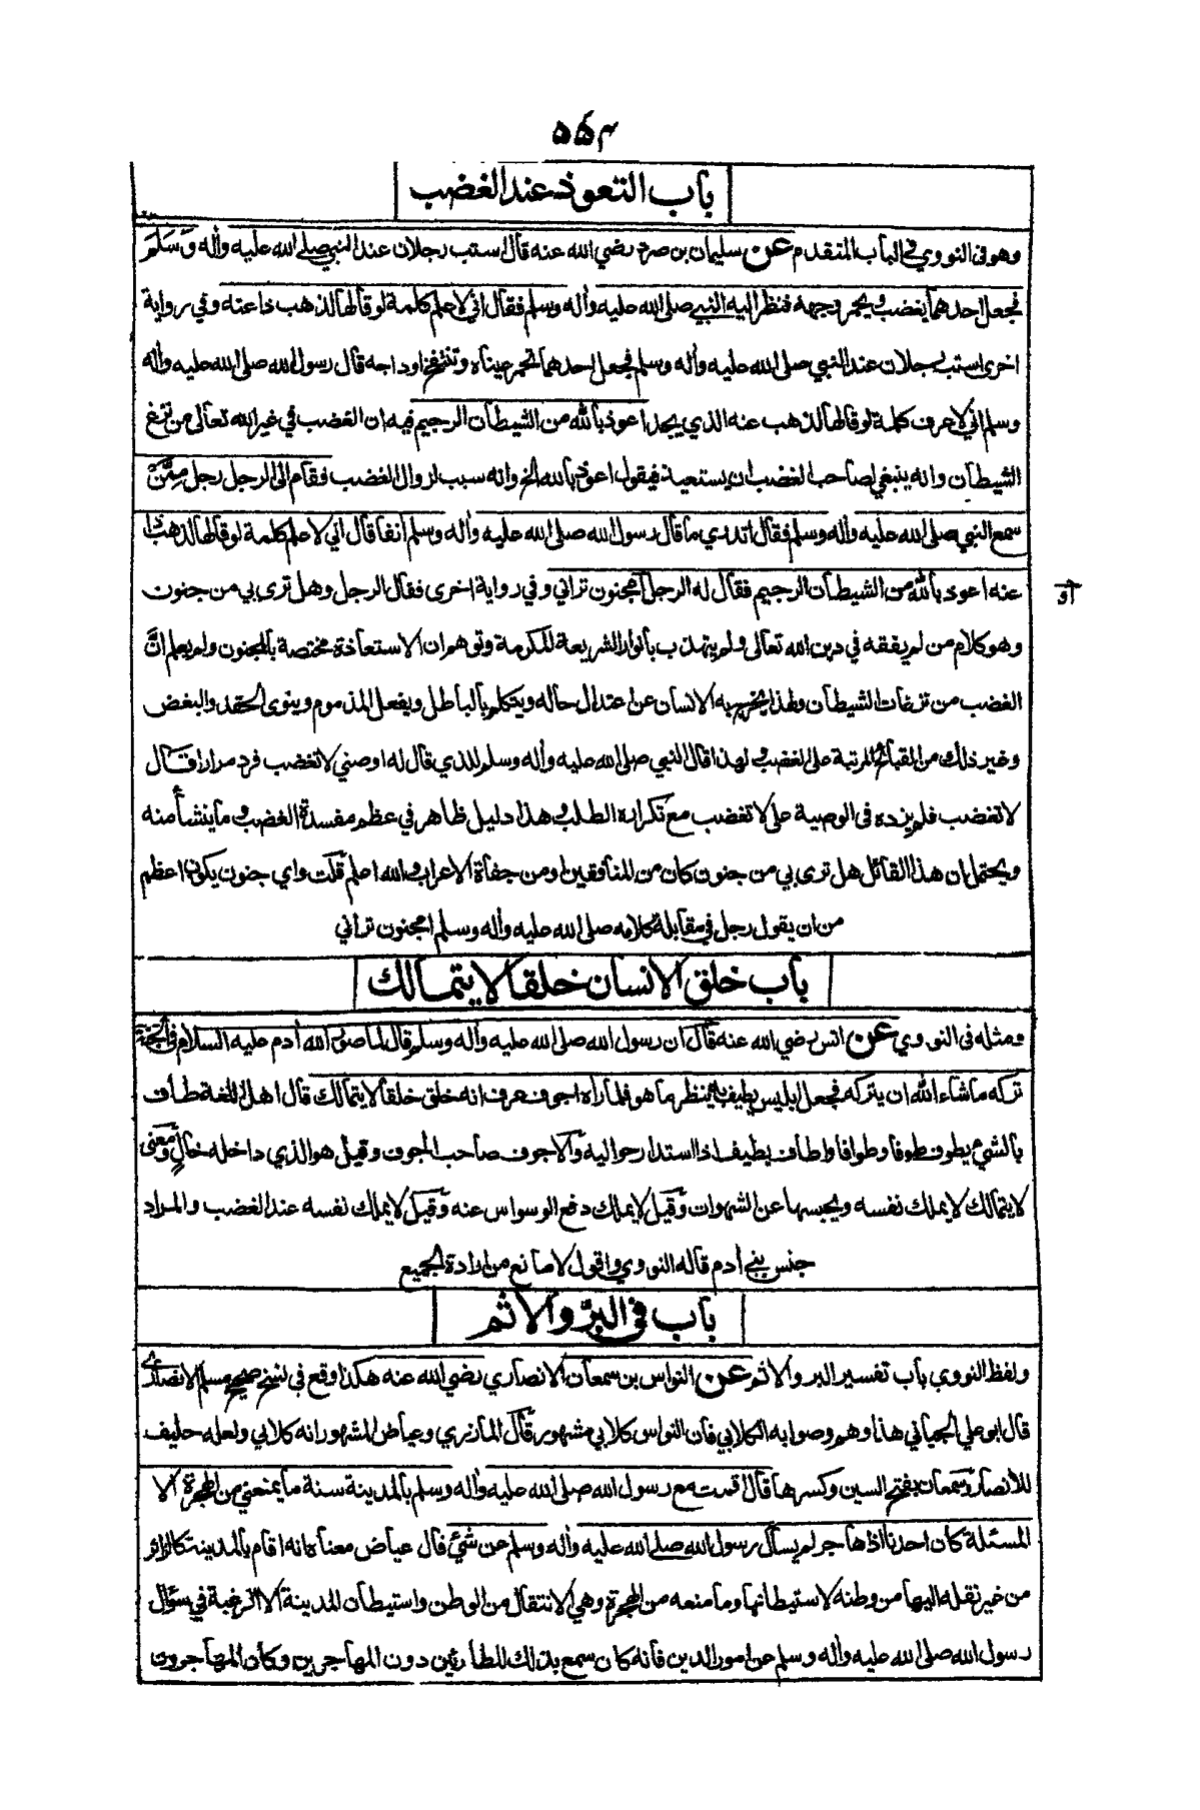 باب التعوذ عند الغضب
وهو فى النووي فى الباب المتقدم عن سليمان بن صرد رضي الله عنه قال استب رجلان عند النبي صلى الله عليه وأله وسلم
فجعل احدهما يغضب ويحمر وجهه فنظر اليه النبي صلى الله عليه وأله وسلم فقال اني لاعلم كلمة لو قالها لذهب ذا عنه وفي رواية
اخرى استب رجلان عند النبي صلى الله عليه وأله وسلم فجعل احدهما تحمر عيناه وتنتفخ اوداجه قال رسول الله صلى الله عليه وأله
وسلم اني لاعرف كلمة لو قالها لذهب عنه الذي يجد اعوذ بالله من الشيطان الرجيم فيه ان الغضب في غير الله تعالى من نزغ
الشيطان وانه ينبغي لصاحب الغضب ان يستعيذ فيقول اعوذ بالله الخ وانه سبب لزوال الغضب فقام الى الرجل رجل ممن
سمع النبي صلى الله عليه وأله وسلم فقال اتدري ما قال رسول الله صلى الله عليه وأله وسلم أنفا قال اني لاعلم كلمة لو قالها لذهب ذا
عنه اعوذ بالله من الشيطان الرجيم فقال له الرجل أمجنون تراني وفي رواية اخرى فقال الرجل وهل ترى بي من جنون
وهو كلام من لم يفقه في دين الله تعالى ولم يتهذب بانوار الشريعة المكرمة وتوهم ان الاستعاذة مختصة بالمجنون ولم يعلم ان
الغضب من نزغات الشيطان ولهذا يخرج به الانسان عن اعتدال حاله ويتكلم بالباطل ويفعل المذموم وينوى الحقد والبغض
وغير ذلك من القبائح المرتبة على الغضب ولهذا قال النبي صلى الله عليه وأله وسلم للذي قال له اوصني لا تغضب فردد مرارا قال
لا تغضب فلم يزده فى الوصية على لا تغضب مع تكراره الطلب وهذا دليل ظاهر في عظم مفسدة الغضب وما ينشأ منه
ويحتمل ان هذا القائل هل ترى بي من جنون كان من المنافقين او من جفاة الاعراب والله اعلم قلت واي جنون يكون اعظم
من ان يقول رجل في مقابلة كلامه صلى الله عليه وأله وسلم امجنون تراني
باب خلق الانسان خلقا لا يتمالك
ومثله فى النووي عن انس رضي الله عنه قال ان رسول الله صلى الله عليه وأله وسلم قال لما صور الله أدم عليه السلام فى الجنة
تركه ما شاء الله ان يتركه فجعل ابليس يطيف به ينظر ما هو فلما رأه اجوف عرف انه خلق خلقا لا يتمالك قال اهل اللغة طاف
بالشئ يطوف طوفا وطوافا واطاف يطيف اذا استدار حواليه والاجوف صاحب الجوف وقيل هو الذي داخله خال ومعنى
لا يتمالك لا يملك نفسه ويحبسها عن الشهوات وقيل لا يملك دفع الوسواس عنه وقيل لا يملك نفسه عند الغضب والمراد
جنس بني أدم قاله النووي واقول لا مانع من ارادة الجميع
باب فى البر والاثم
ولفظ النووي باب تفسير البر والاثم عن النواس بن سمعان الانصاري رضي الله عنه هكذا وقع فى نسخ صحيح مسلم الانصاري
قال ابو علي الجياني هذا وهم وصوابه الكلابي فان النواس كلابي مشهور قال المازري وعياض المشهور انه كلابي ولعله حليف
للانصار وسمعان بفتح السين وكسرها قال اقمت مع رسول الله صلى الله عليه وأله وسلم بالمدينة سنة ما يمنعني من الهجرة الا
المسئلة كان احدنا اذا هاجر لم يسأل رسول الله صلى الله عليه وأله وسلم عن شئ قال عياض معناه انه اقام بالمدينة كالزائر
من غير نقله اليها من وطنه لاستيطانها وما منعه من الهجرة وهي الانتقال من الوطن واستيطان المدينة الا الرغبة في سؤال
رسول الله صلى الله عليه وأله وسلم عن امور الدين فانه كان سمع بذلك للطارئين دون المهاجرين وكان المهاجرون